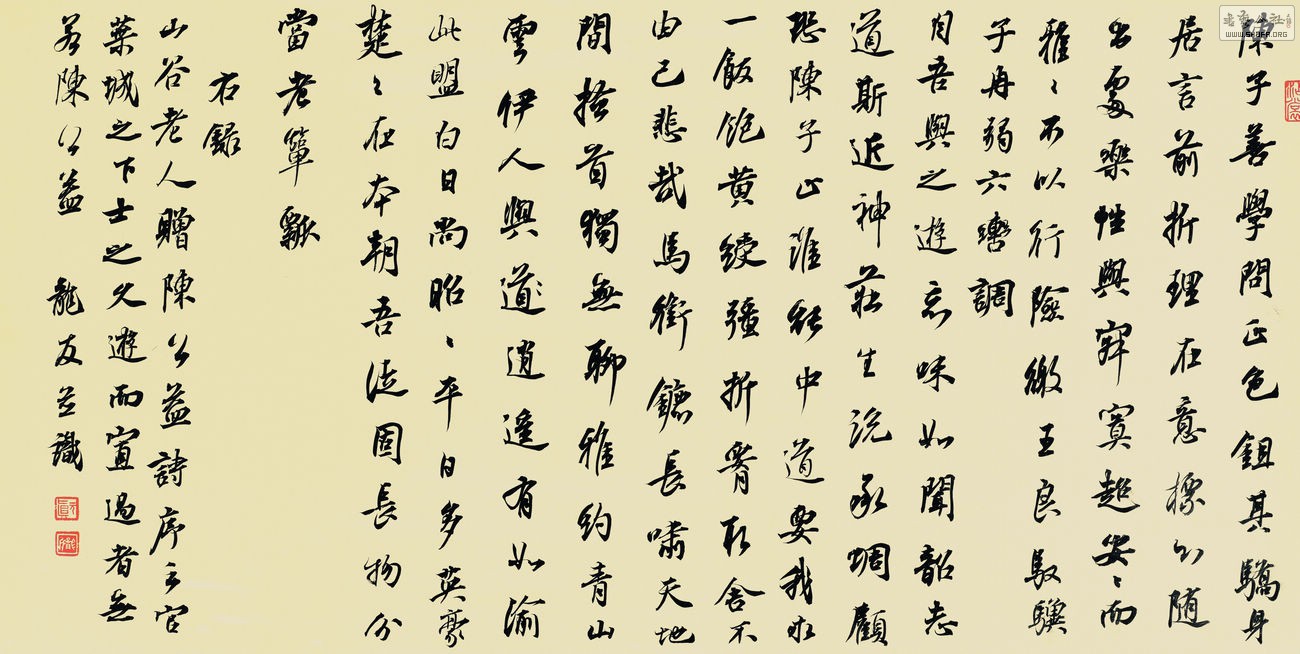 陳子善學問正色鉏其驕身
居言前折理在意標随
處樂性與寂寞超安〻而
雅〻不以行險徼王良馭驥
子再弱六轡調
月吾與之遊忘味如聞韶志
道斯近神莊生説承蜩顧
恐陳子止誰能中道要我
一飯飽黃綬彊折腰取舍不
由己悲哉馬銜鑣長嘯天地
間搔首獨無聊雅約青山
雲伊人與道逍遙有如渝
此盟白日尚昭〻平日多英豪
楚〻在本朝吾徒固長物分
當老簞瓢
右錄
山谷老人贈陳公益詩序言官
葉城之下士之久遊而寡過者無
若陳公益 龍友并識
WWW.SHGER.ORG